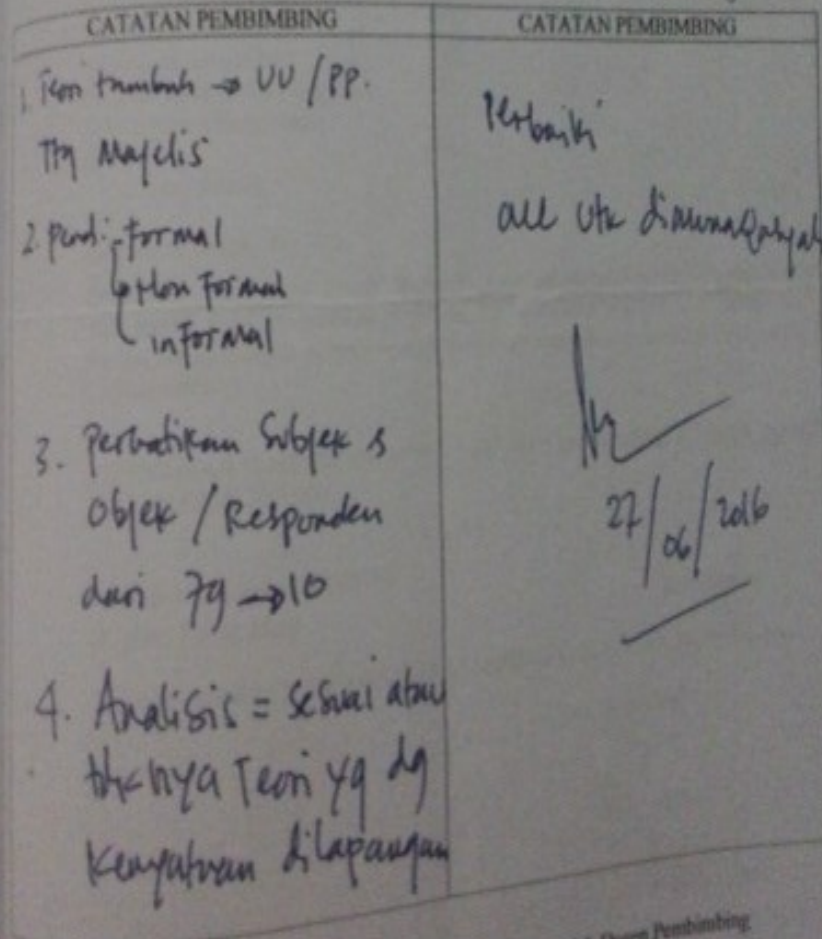 CATATAN PEMBIMBING
1. Teori tambah → UU/PP.
Ttg Majelis
2. Pend: Formal
Non Formal
inFormal
3. Perhatikan Subjek &
Objek / Responden
dari 79 → 10
4. Analisis = Sesuai atau
tdk nya Teori yg dg
Kenyataan dilapangan
CATATAN PEMBIMBING
Perbaiki
acc utk dimunaqasyah
27/06/2016
Dosen Pembimbing